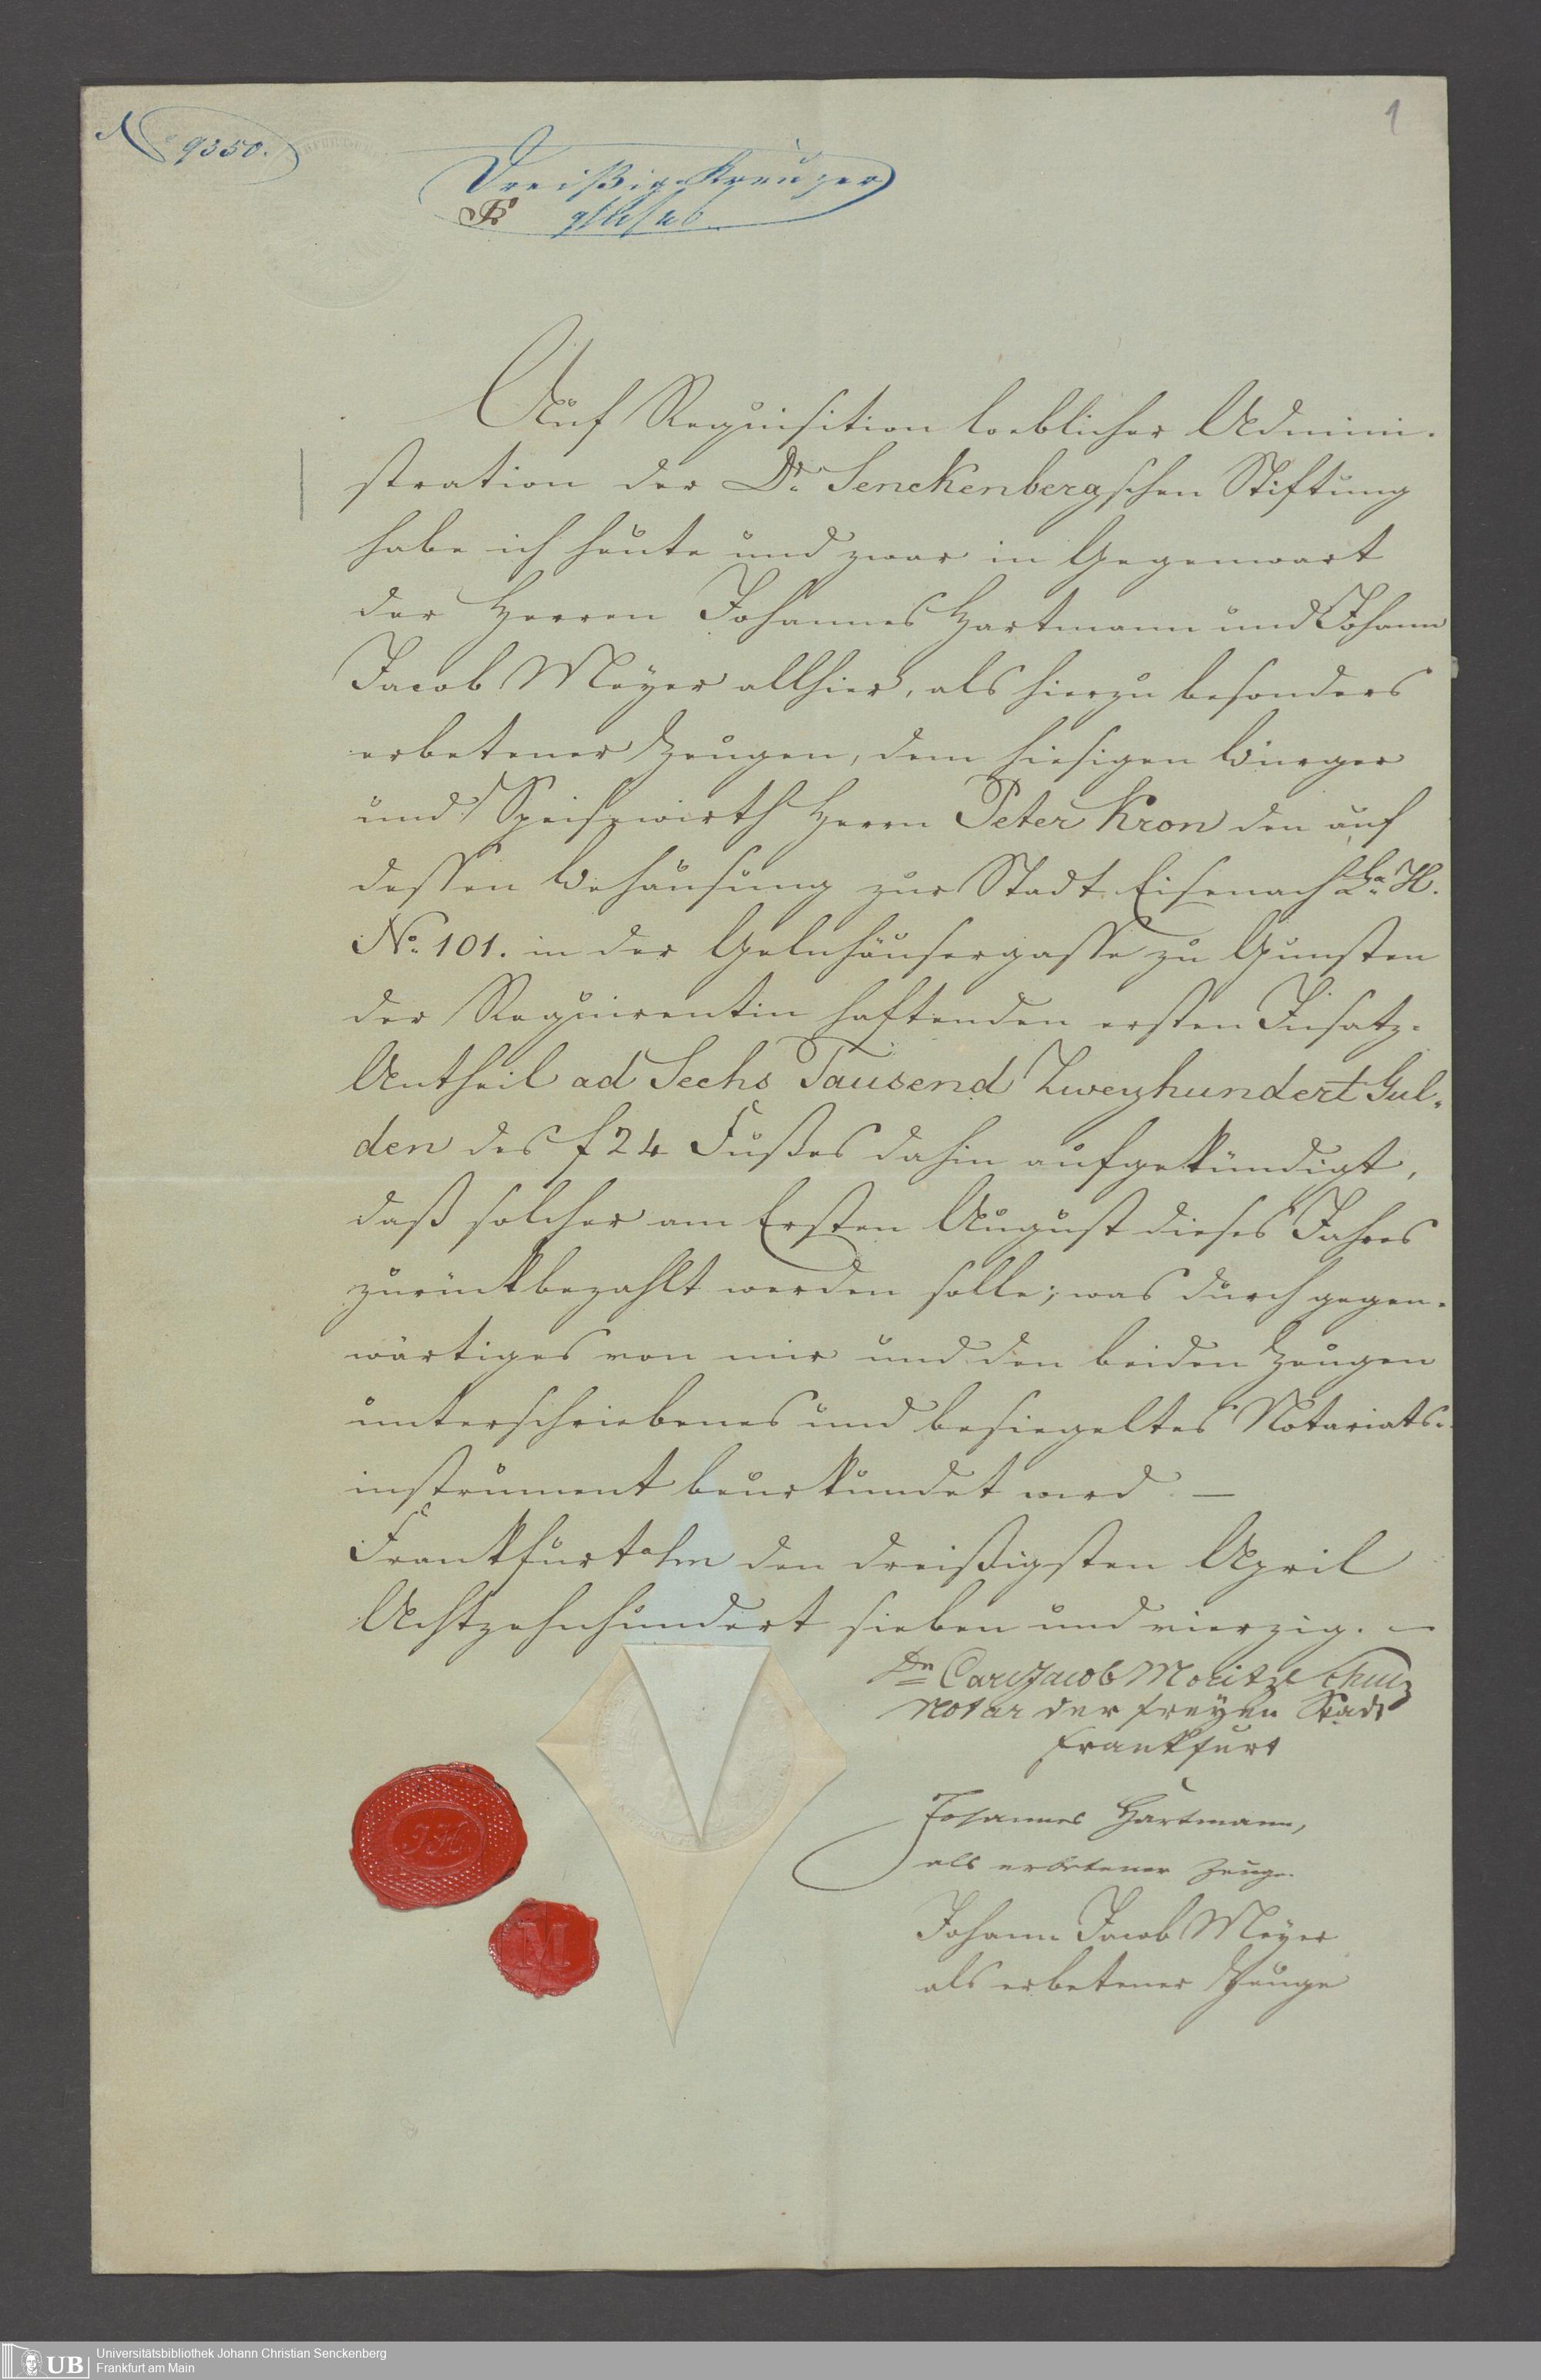 1
No 9350.
Dreißig Kreuzer
Auf Requisition loeblicher Admini-
stration der Dr. Senckenbergschen Stiftung
habe ich heute und zwar in Gegenwart
der Herren Johannes Hartmann und Johann
Jacob Meyer allhier, als hierzu besonders
erbetener Zeugen, dem hiesigen Bürger
und Speisewirth Herrn Peter Kron den auf
dessen Behausung zur Stadt Eisenach La. H.
No. 101. in der Gelnhäusergasse zu Gunsten
der Requirentin haftenden ersten Insatz-
Antheil ad Sechs Tausend Zweyhundert Gul-
den des f 24 Fußes dahin aufgekündigt,
daß solcher am Ersten August dieses Jahres
zurückbezahlt werden solle; was durch gegen-
wärtiges von mir und den beiden Zeugen
unterschriebenes und besiegeltes Notariats-
instrument beurkundet wird. —
Frankfurt a/m den dreißigsten April
Achtzehnhundert sieben und vierzig. —
Dr Carl Jacob Moritz
Notar der freyen Stadt
Frankfurt
Johannes Hartmann,
als erbetener Zeuge.
Johann Jacob Meyer
als erbetener Zeuge
JH
M
UB
Universitätsbibliothek Johann Christian Senckenberg
Frankfurt am Main